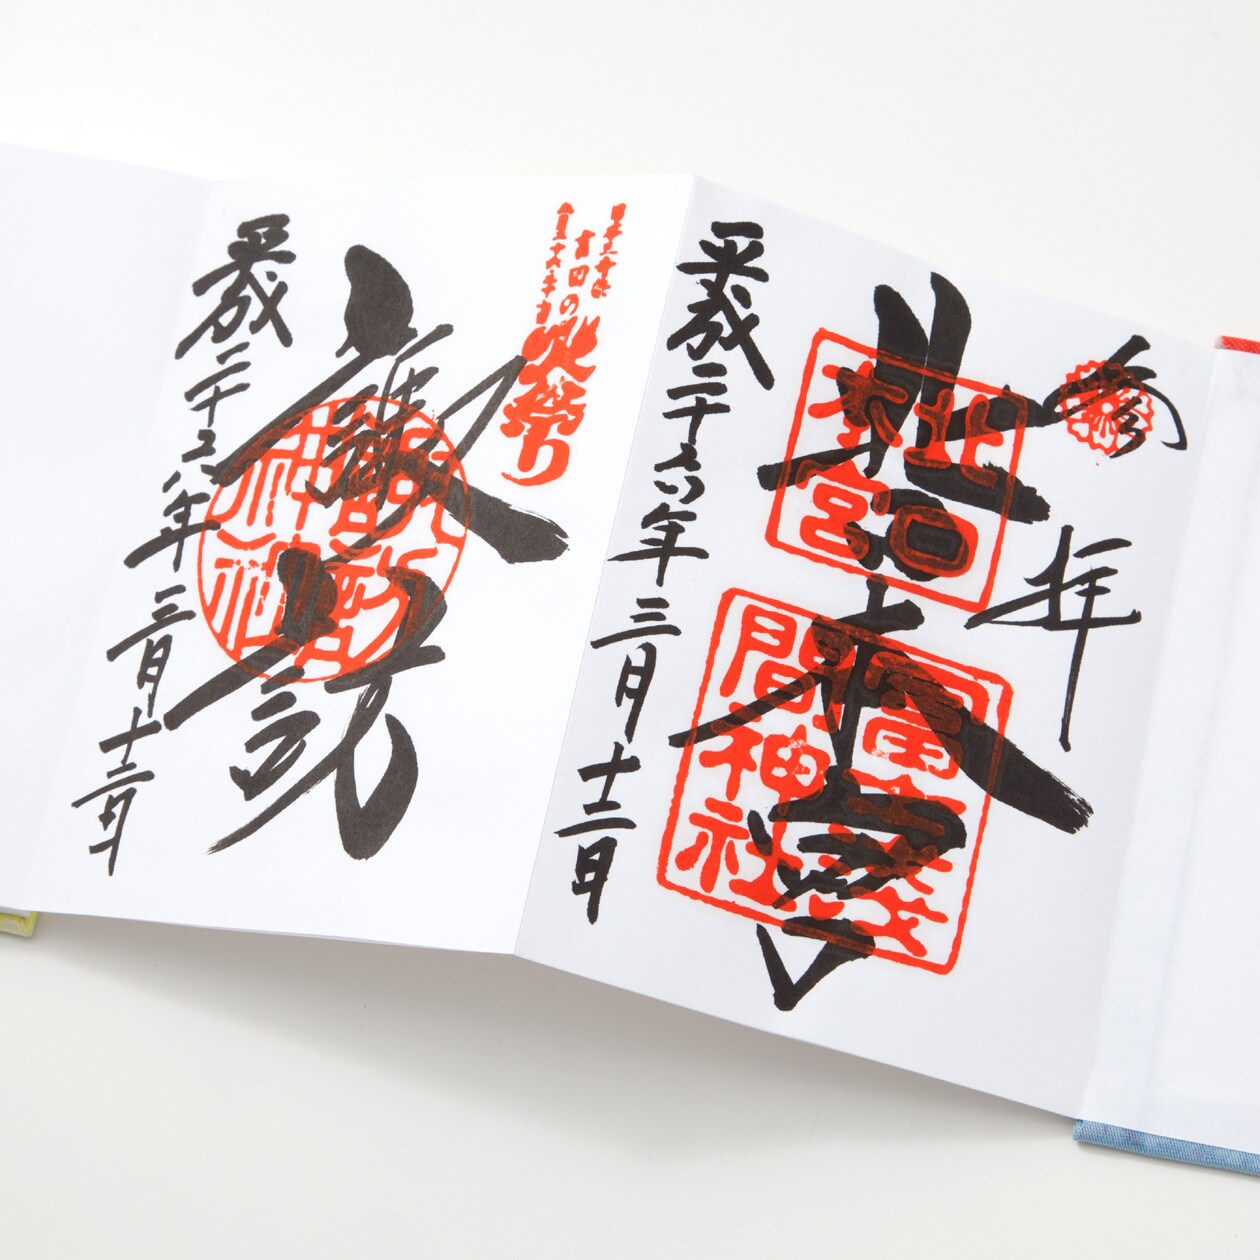 参拝
北口本宮
北口
本宮
冨士浅
間神社
平成二十六年三月十二日
吉田の
火祭り
諏訪
神社
諏訪
平成二十六年三月十二日